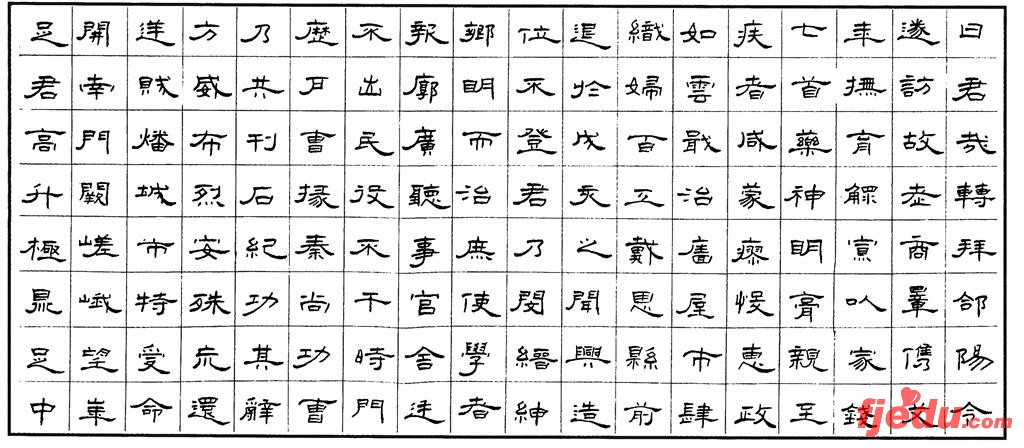 曰君哉轉拜郃陽令
遂訪故老商量儁艾
年撫育鰥寡以家錢
七首藥神明膏親至
疾者咸蒙瘳悛惠政
如雲戢治廧屋市肆
織婦百工戴恩縣前
退於戌亥之間興造
位不登君乃閔縉紳
鄉明而治庶使學者
報廓廣聽事官舍廷
不出民役不干時門
歷戶曹掾秦尚功曹
乃共刊石紀功其辭
方威布烈安殊荒還
逆賊燔城市特受命
開南門闕嵯峨望華
足君高升極鼎足中
fjedu.com